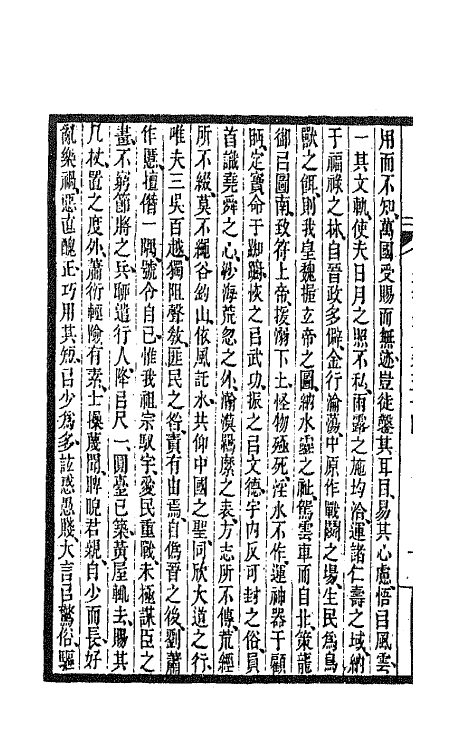 用而不知萬國受賜而無迹豈徒鑿其耳目易其心慮悟㠯風雲
一其文軌使夫日月之照不私雨露之施均洽運諸仁壽之域納
于福祿之林自晉政多僻金行淪蕩中原作戰鬬之場生民為鳥
獸之餌則我皇魏握玄帝之圖納水靈之祉駕雲車而自北策龍
御㠯圖南致符上帝援溺下土怪物殛死淫水不作運神器于顧
眄定寶命于踟躕恢之㠯武功振之㠯文德宇內反可封之俗員
首識堯舜之心紗海荒忽之外瀚漠羈縻之表方志所不傳荒經
所不綴莫不繩谷釣山依風託水共仰中國之聖同欣大道之行
唯夫三吳百越獨阻聲敎匪民之咎責有由焉自僞晉之後劉蕭
作慝擅僭一隅號令自己惟我祖宗馭宇愛民重戰未極謀臣之
畫不窮節將之兵聊遣行人降㠯尺一圓臺已築黃屋輒去賜其
几杖置之度外蕭衍輕險有素士操蔑聞睥睨君親自少而長好
亂樂禍惡直醜正巧用其短㠯少爲多訨惑愚賤大言㠯驚俗驅